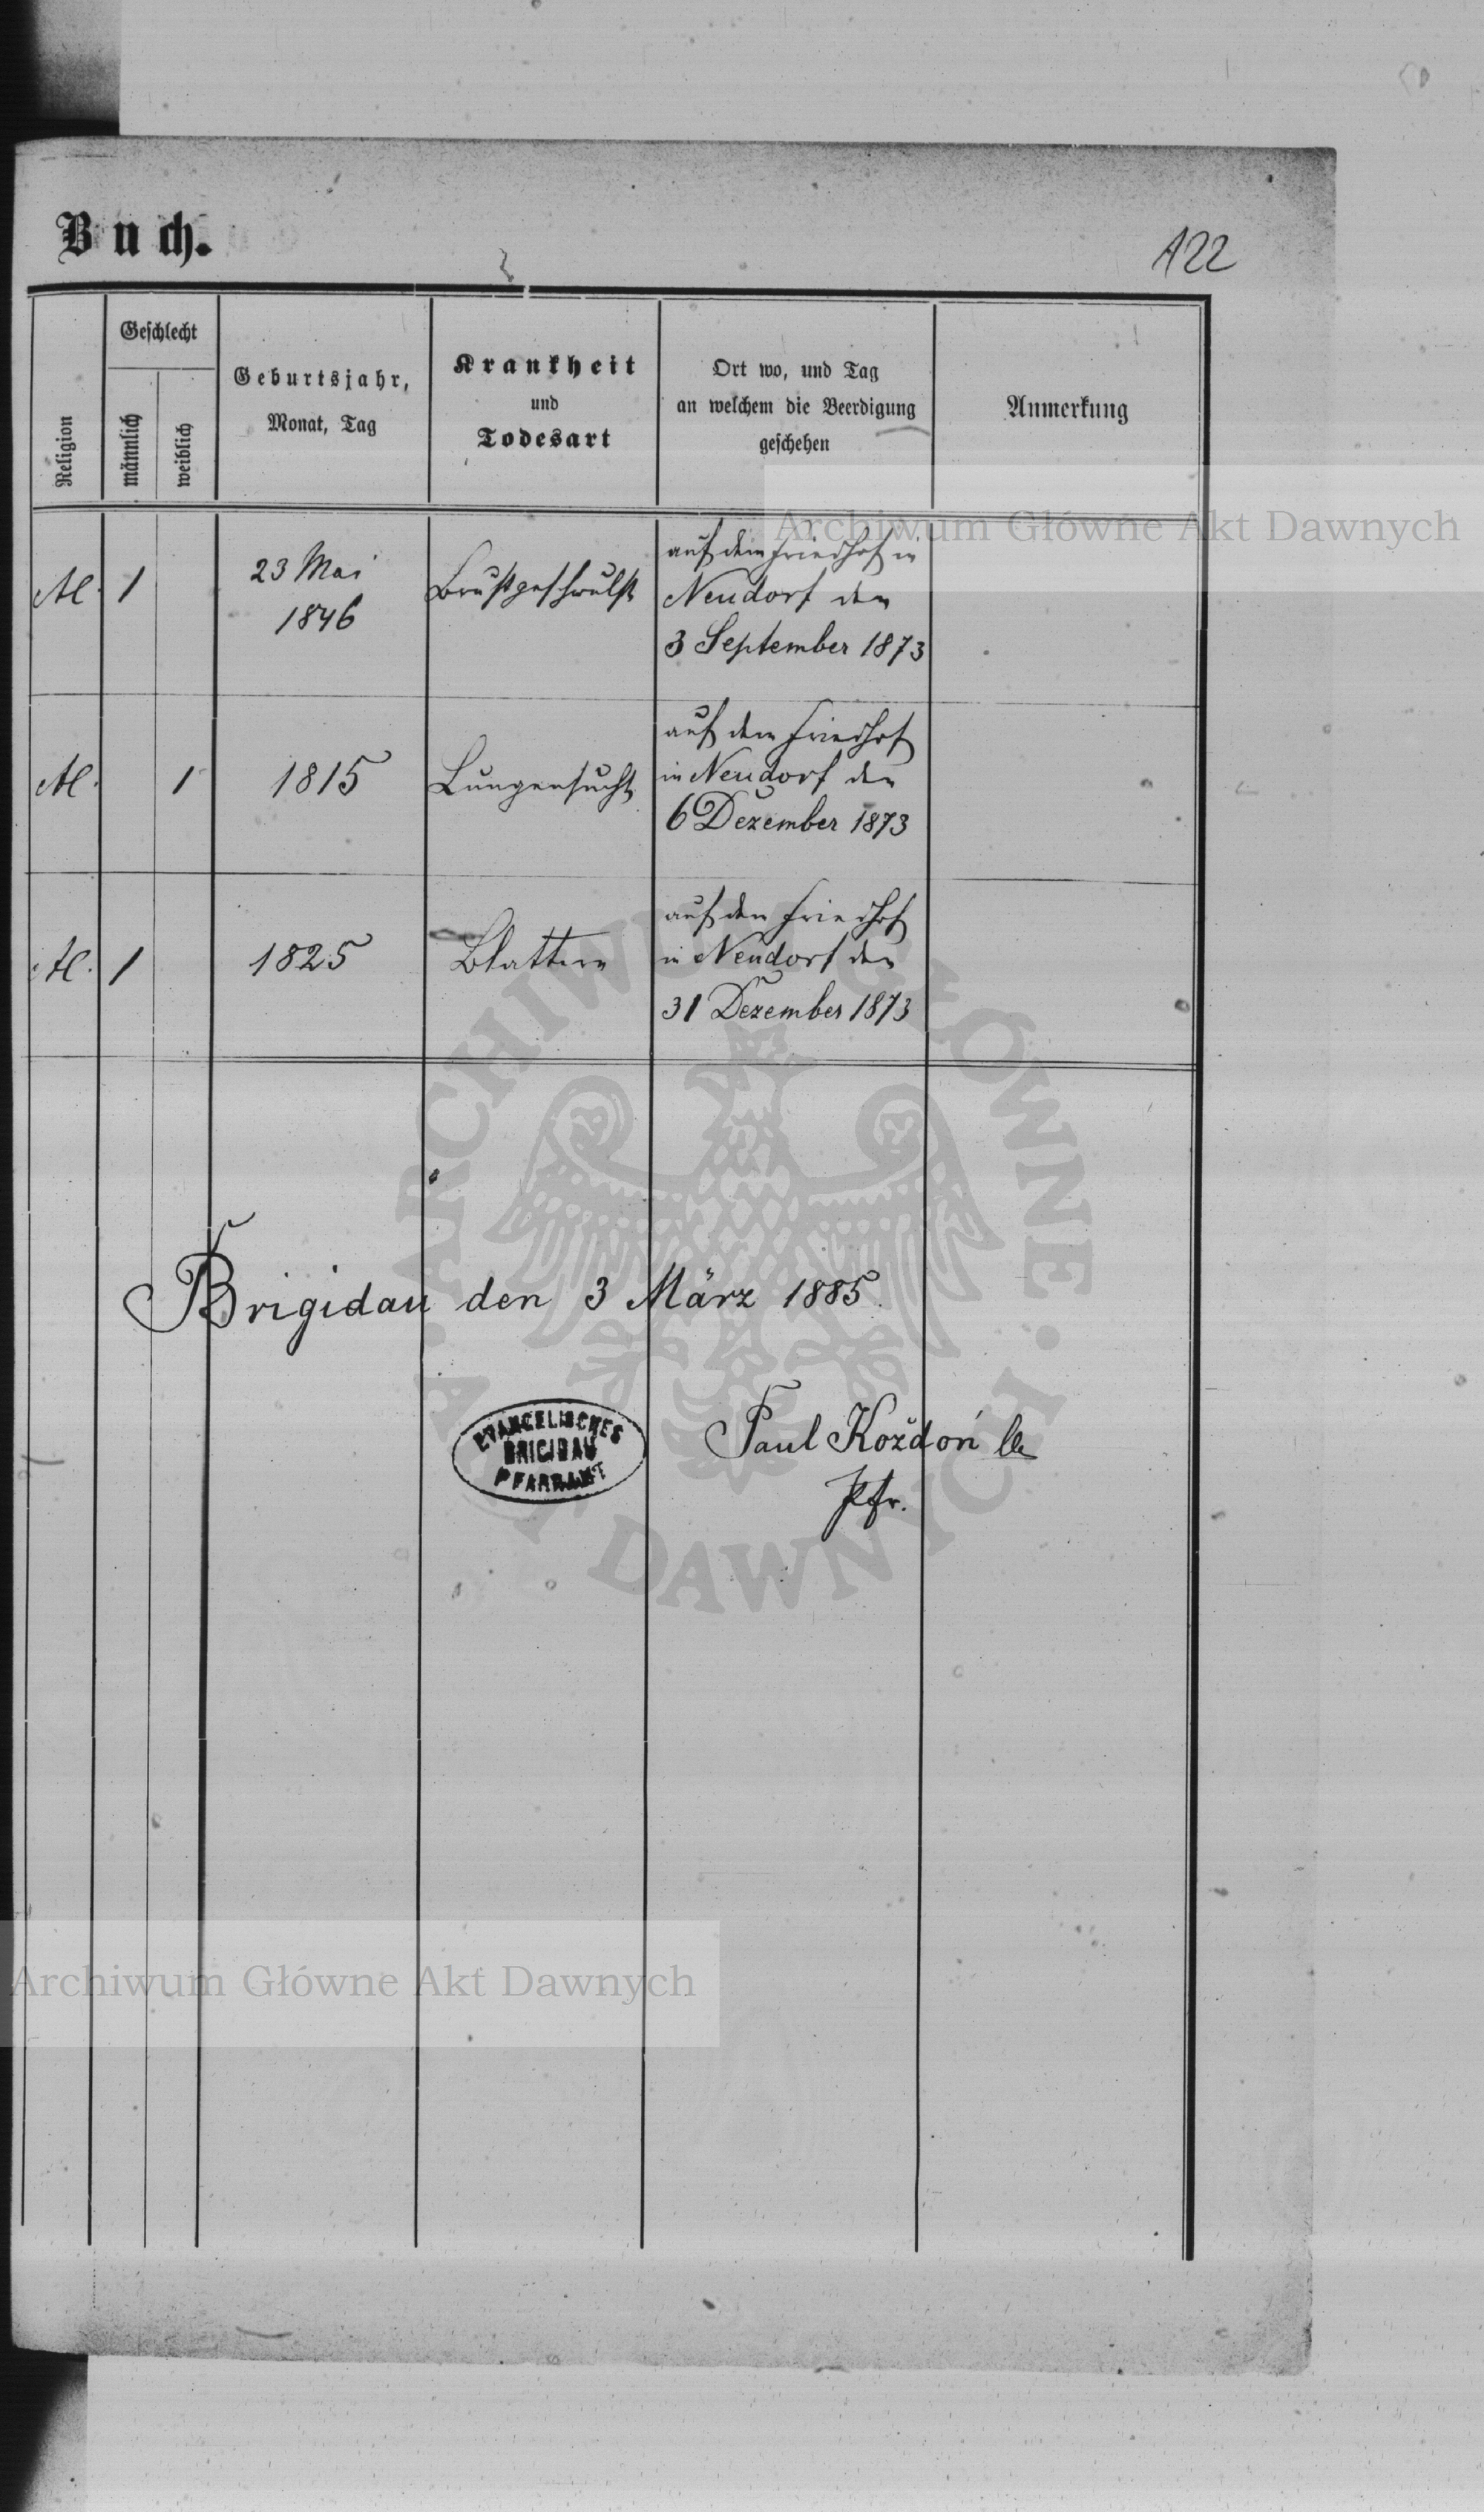 Buch.
122
Religion
Geschlecht
männlich
weiblich
Geburtsjahr,
Monat, Tag
Krankheit
und
Todesart
Ort wo, und Tag
an welchem die Beerdigung
geschehen
Anmerkung
1
23 Mai
1846
Brustgeschwulst
auf dem Friedhof in
Neudorf den
3 September 1873
1
1815
Lungensucht
auf dem Friedhof
in Neudorf den
6 Dezember 1873
1
1825
Blattern
auf dem Friedhof
in Neudorf den
31 Dezember 1873
Brigidau den 3 März 1885.
EVANGELISCHES
BRIGIDAU
PFARRAMT
Paul Kożdoń
Pfr.
Archiwum Główne Akt Dawnych
ARCHIWUM GŁÓWNE
AKT DAWNYCH
Archiwum Główne Akt Dawnych